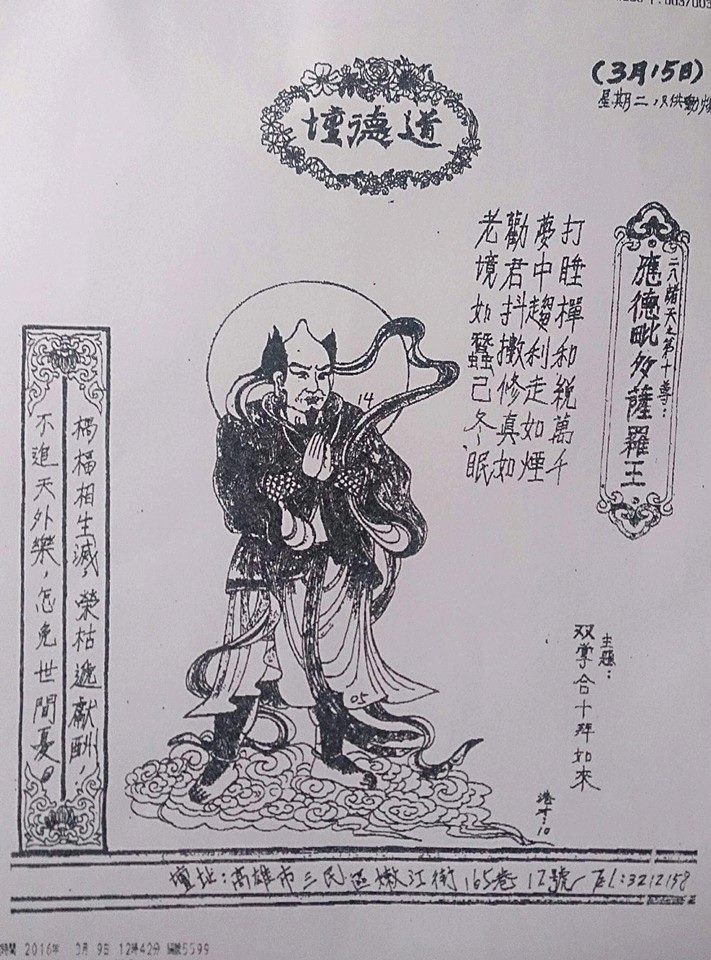 003/003
(3月15日)
星期二
道德壇
二八諸天之第十尊:
應德毗多薩羅王
打睡禪和稅萬千
夢中趨利走如煙
勸君抖擻修真如
老境如蠶已冬眠
14
05
主題:
双掌合十拜如來
禍福相生滅,榮枯遞獻酬;
不追天外樂,怎免世間憂。
壇址:高雄市三民區嫩江街165巷12號 Tel:3212158
時間 2016年 3月 9日 12時42分 編號5599